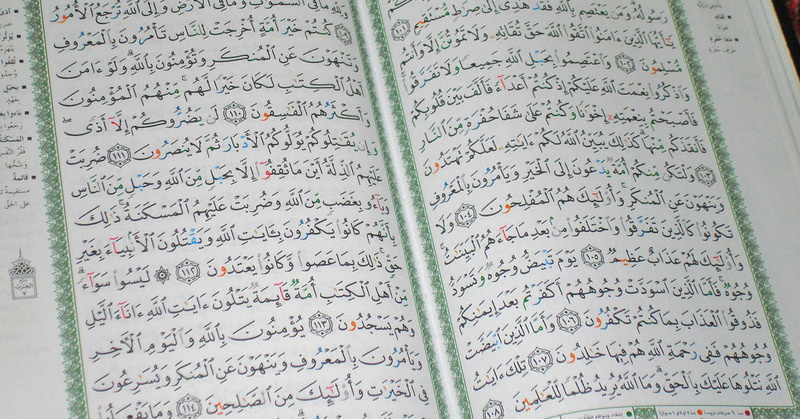 رَسُولُهُۥ وَمَن يَعْتَصِم بِٱللَّهِ فَقَدْ هُدِىَ إِلَىٰ صِرَٰطٍ مُّسْتَقِيمٍ
١٠١ يَٰٓأَيُّهَا ٱلَّذِينَ ءَامَنُوا۟ ٱتَّقُوا۟ ٱللَّهَ حَقَّ تُقَاتِهِۦ وَلَا تَمُوتُنَّ إِلَّا وَأَنتُم
مُّسْلِمُونَ ١٠٢ وَٱعْتَصِمُوا۟ بِحَبْلِ ٱللَّهِ جَمِيعًا وَلَا تَفَرَّقُوا۟
وَٱذْكُرُوا۟ نِعْمَتَ ٱللَّهِ عَلَيْكُمْ إِذْ كُنتُمْ أَعْدَآءً فَأَلَّفَ بَيْنَ قُلُوبِكُمْ
فَأَصْبَحْتُم بِنِعْمَتِهِۦٓ إِخْوَٰنًا وَكُنتُمْ عَلَىٰ شَفَا حُفْرَةٍ مِّنَ ٱلنَّارِ
فَأَنقَذَكُم مِّنْهَا كَذَٰلِكَ يُبَيِّنُ ٱللَّهُ لَكُمْ ءَايَٰتِهِۦ لَعَلَّكُمْ تَهْتَدُونَ
١٠٣ وَلْتَكُن مِّنكُمْ أُمَّةٌ يَدْعُونَ إِلَى ٱلْخَيْرِ وَيَأْمُرُونَ بِٱلْمَعْرُوفِ
وَيَنْهَوْنَ عَنِ ٱلْمُنكَرِ وَأُو۟لَٰٓئِكَ هُمُ ٱلْمُفْلِحُونَ ١٠٤ وَلَا
تَكُونُوا۟ كَٱلَّذِينَ تَفَرَّقُوا۟ وَٱخْتَلَفُوا۟ مِنۢ بَعْدِ مَا جَآءَهُمُ ٱلْبَيِّنَٰتُ
وَأُو۟لَٰٓئِكَ لَهُمْ عَذَابٌ عَظِيمٌ ١٠٥ يَوْمَ تَبْيَضُّ وُجُوهٌ وَتَسْوَدُّ
وُجُوهٌ فَأَمَّا ٱلَّذِينَ ٱسْوَدَّتْ وُجُوهُهُمْ أَكَفَرْتُم بَعْدَ إِيمَٰنِكُمْ
فَذُوقُوا۟ ٱلْعَذَابَ بِمَا كُنتُمْ تَكْفُرُونَ ١٠٦ وَأَمَّا ٱلَّذِينَ ٱبْيَضَّتْ
وُجُوهُهُمْ فَفِى رَحْمَةِ ٱللَّهِ هُمْ فِيهَا خَٰلِدُونَ ١٠٧ تِلْكَ ءَايَٰتُ
ٱللَّهِ نَتْلُوهَا عَلَيْكَ بِٱلْحَقِّ وَمَا ٱللَّهُ يُرِيدُ ظُلْمًا لِّلْعَٰلَمِينَ ١٠٨
وَلِلَّهِ مَا فِى ٱلسَّمَٰوَٰتِ وَمَا فِى ٱلْأَرْضِ وَإِلَى ٱللَّهِ تُرْجَعُ ٱلْأُمُورُ
١٠٩ كُنتُمْ خَيْرَ أُمَّةٍ أُخْرِجَتْ لِلنَّاسِ تَأْمُرُونَ بِٱلْمَعْرُوفِ
وَتَنْهَوْنَ عَنِ ٱلْمُنكَرِ وَتُؤْمِنُونَ بِٱللَّهِ وَلَوْ ءَامَنَ
أَهْلُ ٱلْكِتَٰبِ لَكَانَ خَيْرًا لَّهُم مِّنْهُمُ ٱلْمُؤْمِنُونَ
وَأَكْثَرُهُمُ ٱلْفَٰسِقُونَ ١١٠ لَن يَضُرُّوكُمْ إِلَّآ أَذًى
وَإِن يُقَٰتِلُوكُمْ يُوَلُّوكُمُ ٱلْأَدْبَارَ ثُمَّ لَا يُنصَرُونَ ١١١ ضُرِبَتْ
عَلَيْهِمُ ٱلذِّلَّةُ أَيْنَ مَا ثُقِفُوٓا۟ إِلَّا بِحَبْلٍ مِّنَ ٱللَّهِ وَحَبْلٍ مِّنَ ٱلنَّاسِ
وَبَآءُو بِغَضَبٍ مِّنَ ٱللَّهِ وَضُرِبَتْ عَلَيْهِمُ ٱلْمَسْكَنَةُ ذَٰلِكَ
بِأَنَّهُمْ كَانُوا۟ يَكْفُرُونَ بِـَٔايَٰتِ ٱللَّهِ وَيَقْتُلُونَ ٱلْأَنۢبِيَآءَ بِغَيْرِ
حَقٍّ ذَٰلِكَ بِمَا عَصَوا۟ وَّكَانُوا۟ يَعْتَدُونَ ١١٢ ۞ لَيْسُوا۟ سَوَآءً
مِّنْ أَهْلِ ٱلْكِتَٰبِ أُمَّةٌ قَآئِمَةٌ يَتْلُونَ ءَايَٰتِ ٱللَّهِ ءَانَآءَ ٱلَّيْلِ
وَهُمْ يَسْجُدُونَ ١١٣ يُؤْمِنُونَ بِٱللَّهِ وَٱلْيَوْمِ ٱلْءَاخِرِ
وَيَأْمُرُونَ بِٱلْمَعْرُوفِ وَيَنْهَوْنَ عَنِ ٱلْمُنكَرِ وَيُسَٰرِعُونَ
فِى ٱلْخَيْرَٰتِ وَأُو۟لَٰٓئِكَ مِنَ ٱلصَّٰلِحِينَ ١١٤ وَمَا يَفْعَلُوا۟